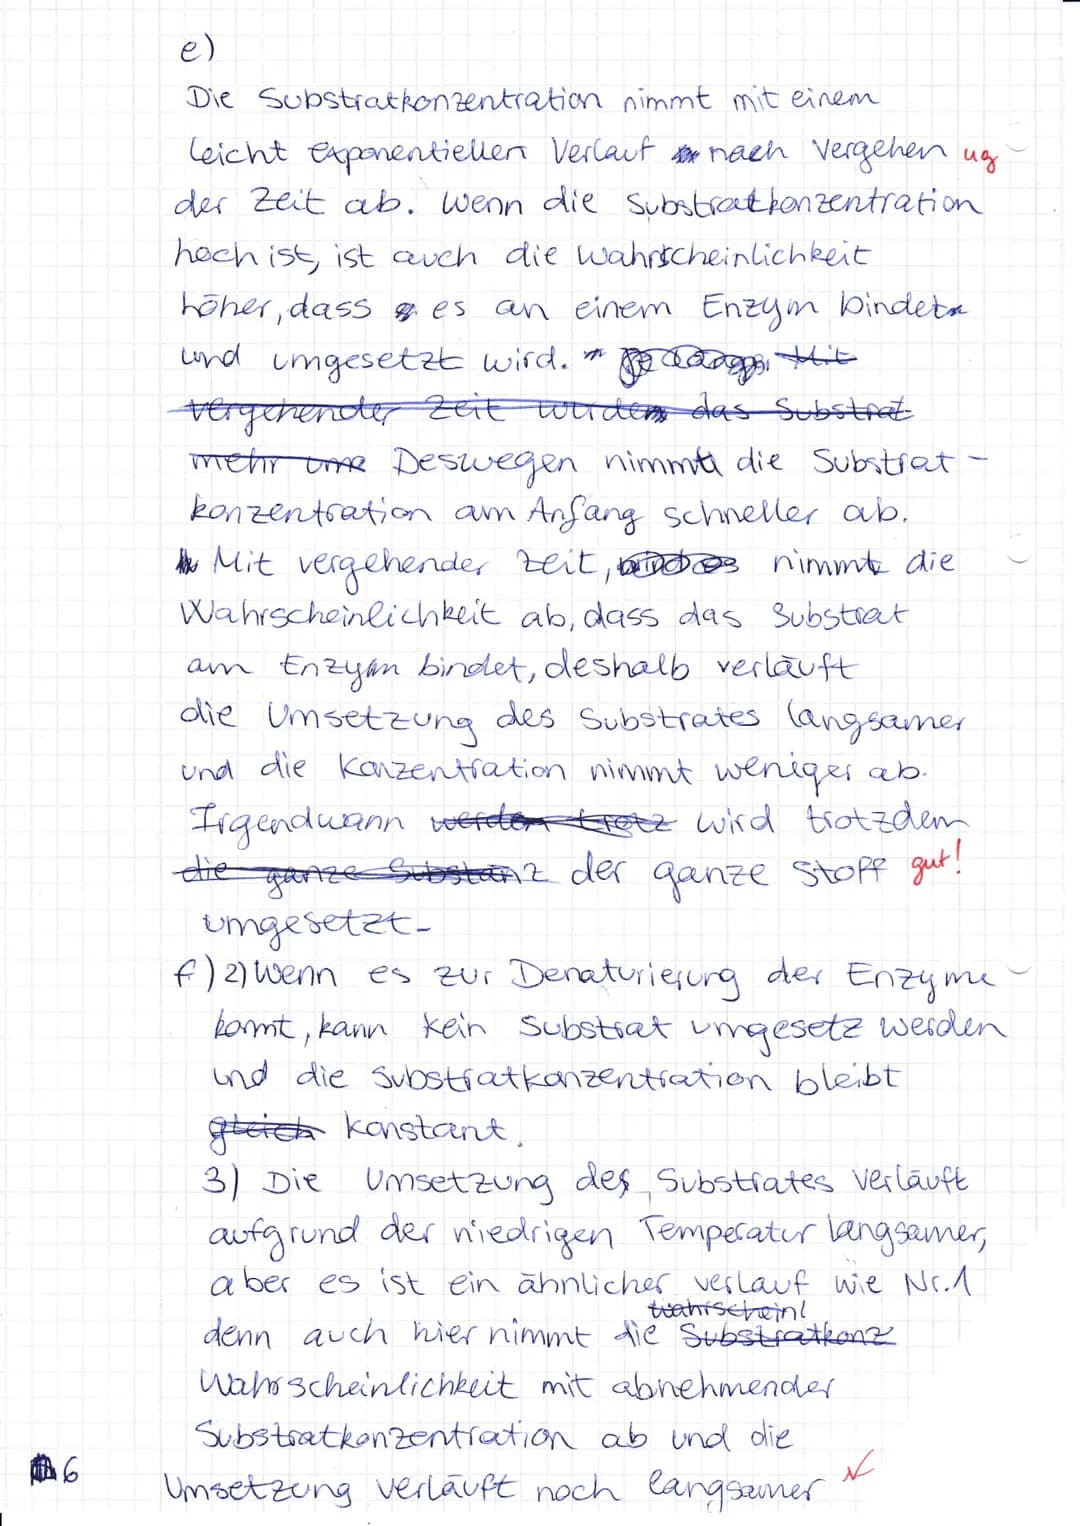 e)
Die Substratkonzentration nimmt mit einem
leicht exponentiellen Verlauf nach Vergehen ug
der Zeit ab. Wenn die Substratkonzentration
hoch ist, ist auch die Wahrscheinlichkeit
höher, dass es an einem Enzym bindet
und umgesetzt wird. Mit
vergehender Zeit wurden das Substrat
mehr Deswegen nimmt die Substrat-
konzentration am Anfang schneller ab.
Mit vergehender Zeit, nimmt die
Wahrscheinlichkeit ab, dass das Substrat
am Enzym bindet, deshalb verläuft
die Umsetzung des Substrates langsamer
und die Konzentration nimmt weniger ab.
Irgendwann werden trotz wird trotzdem
die ganze Substanz der ganze Stoff gut!
umgesetzt.
f) 2) Wenn es zur Denaturierung der Enzyme
komt, kann kein Substrat umgesetz werden
und die Substratkonzentration bleibt
gleich konstant.
3) Die Umsetzung des Substrates verläuft
aufgrund der niedrigen Temperatur langsamer,
aber es ist ein ähnlicher verlauf wie Nr. 1
wahrscheinl
denn auch hier nimmt die Substratkonz
Wahrscheinlichkeit mit abnehmender
Substratkonzentration ab und die
6 Umsetzung verläuft noch langsamer